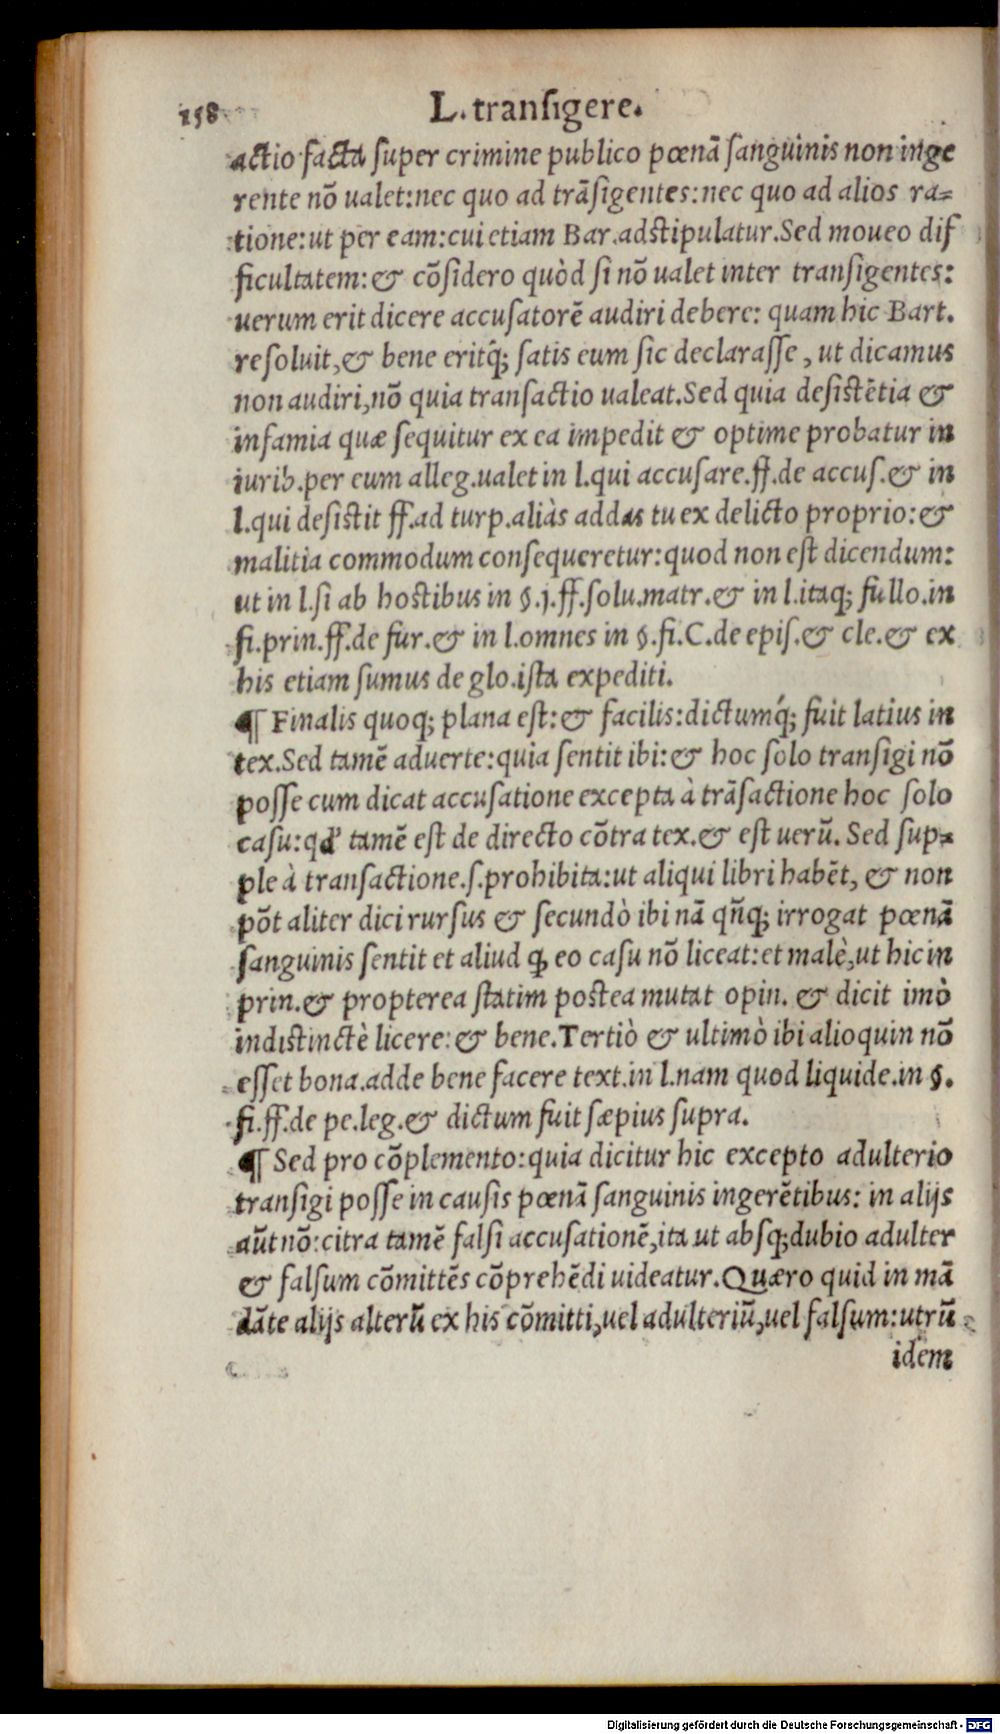 158
L. transigere.
actio facta super crimine publico pœnā sanguinis non inge
rente nō ualet:nec quo ad trāsigentes:nec quo ad alios ra-
tione:ut per eam:cui etiam Bar.adstipulatur.Sed moueo dif
ficultatem:& cōsidero quòd si nō ualet inter transigentes:
uerum erit dicere accusatorē audiri debere: quam hic Bart.
resoluit,& bene eritq́; satis eum sic declarasse, ut dicamus
non audiri,nō quia transactio ualeat.Sed quia desistētia &
infamia quæ sequitur ex ea impedit & optime probatur in
iurib.per eum alleg.ualet in l.qui accusare.ff.de accus.& in
l.qui desistit ff.ad turp.aliàs addas tu ex delicto proprio:&
malitia commodum consequeretur:quod non est dicendum:
ut in l.si ab hostibus in §.j.ff.solu.matr.& in l.itaq; fullo.in
fi.prin.ff.de fur.& in l.omnes in §.fi.C.de epis.& cle.& ex
his etiam sumus de glo.ista expediti.
¶ Finalis quoq; plana est:& facilis:dictumq́; fuit latius in
tex.Sed tamē aduerte:quia sentit ibi:& hoc solo transigi nō
posse cum dicat accusatione excepta à trāsactione hoc solo
casu:qđ tamē est de directo cōtra tex.& est uerū. Sed sup-
ple à transactione.s.prohibita:ut aliqui libri habēt, & non
pōt aliter dici rursus & secundò ibi nā qñq; irrogat pœnā
sanguinis sentit et aliud ꝙ eo casu nō liceat:et malè,ut hic in
prin.& propterea statim postea mutat opin. & dicit imò
indistinctè licere:& bene.Tertiò & ultimò ibi alioquin nō
esset bona.adde bene facere text.in l.nam quod liquide.in §.
fi.ff.de pe.leg.& dictum fuit sæpius supra.
¶ Sed pro cōplemento:quia dicitur hic excepto adulterio
transigi posse in causis pœnā sanguinis ingerētibus: in alijs
aūt nō:citra tamē falsi accusationē,ita ut absq;dubio adulter
& falsum cōmittēs cōprehēdi uideatur.Quæro quid in mā
dāte alijs alterū ex his cōmitti,uel adulteriū,uel falsum:utrū
idem
Digitalisierung gefördert durch die Deutsche Forschungsgemeinschaft - DFG